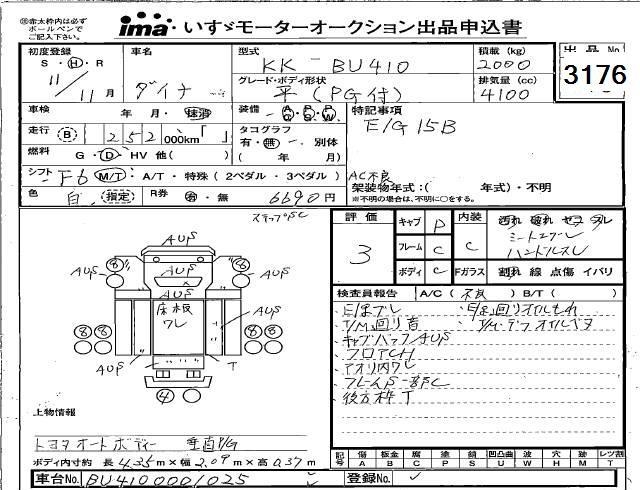 ※赤太枠内は必ず
ボールペンで
ご記入下さい。
ima いすゞモーターオークション出品申込書
初度登録 車名 型式 積載(kg) 出品No
S・H・R 11/11月 ダイナ KK-BU410 2000 3176
グレード・ボディ形状 排気量(cc)
平(PG付) 4100
車検 年・月・抹消 装備 特記事項
E/G 15B
走行 B 252000km「 」 タコグラフ
有・無・別体
燃料 G・D・HV 他( ) ( 年 月)
シフト F6 M/T・A/T・特殊(2ペダル・3ペダル) AC不良
架装物年式:( 年式)・不明
※不明の場合は、不明に○をする。
色 白 指定 R券 有・無 6690円
ステップSC
評価 3
キャブ D 内装 C 汚れ 破れ セコ スレ
フレーム C シートコゲアレ
ハンドルスレ
ボディ C Fガラス 割れ 線 点傷 イバリ
検査員報告 A/C(不良) B/T( )
・T/M回り音
・キャブバックAUS
・フロアCH
・アオリ内ワレ
・フレームS一部C
・後方枠T
AUS
AUS
AUS
AUS
AUS
床板
ワレ
AUS
T
8
8
8
8
4
上物情報
トヨタオートボディー 垂直P/G
ボディ内寸約 長4.35m×幅2.09m×高0.37m
記号 傷A 板金B 腐C 塗P 錆S 凹凸曲U 波W 穴H 跡M レツ割T
車台No. BU4100001025 登録No.